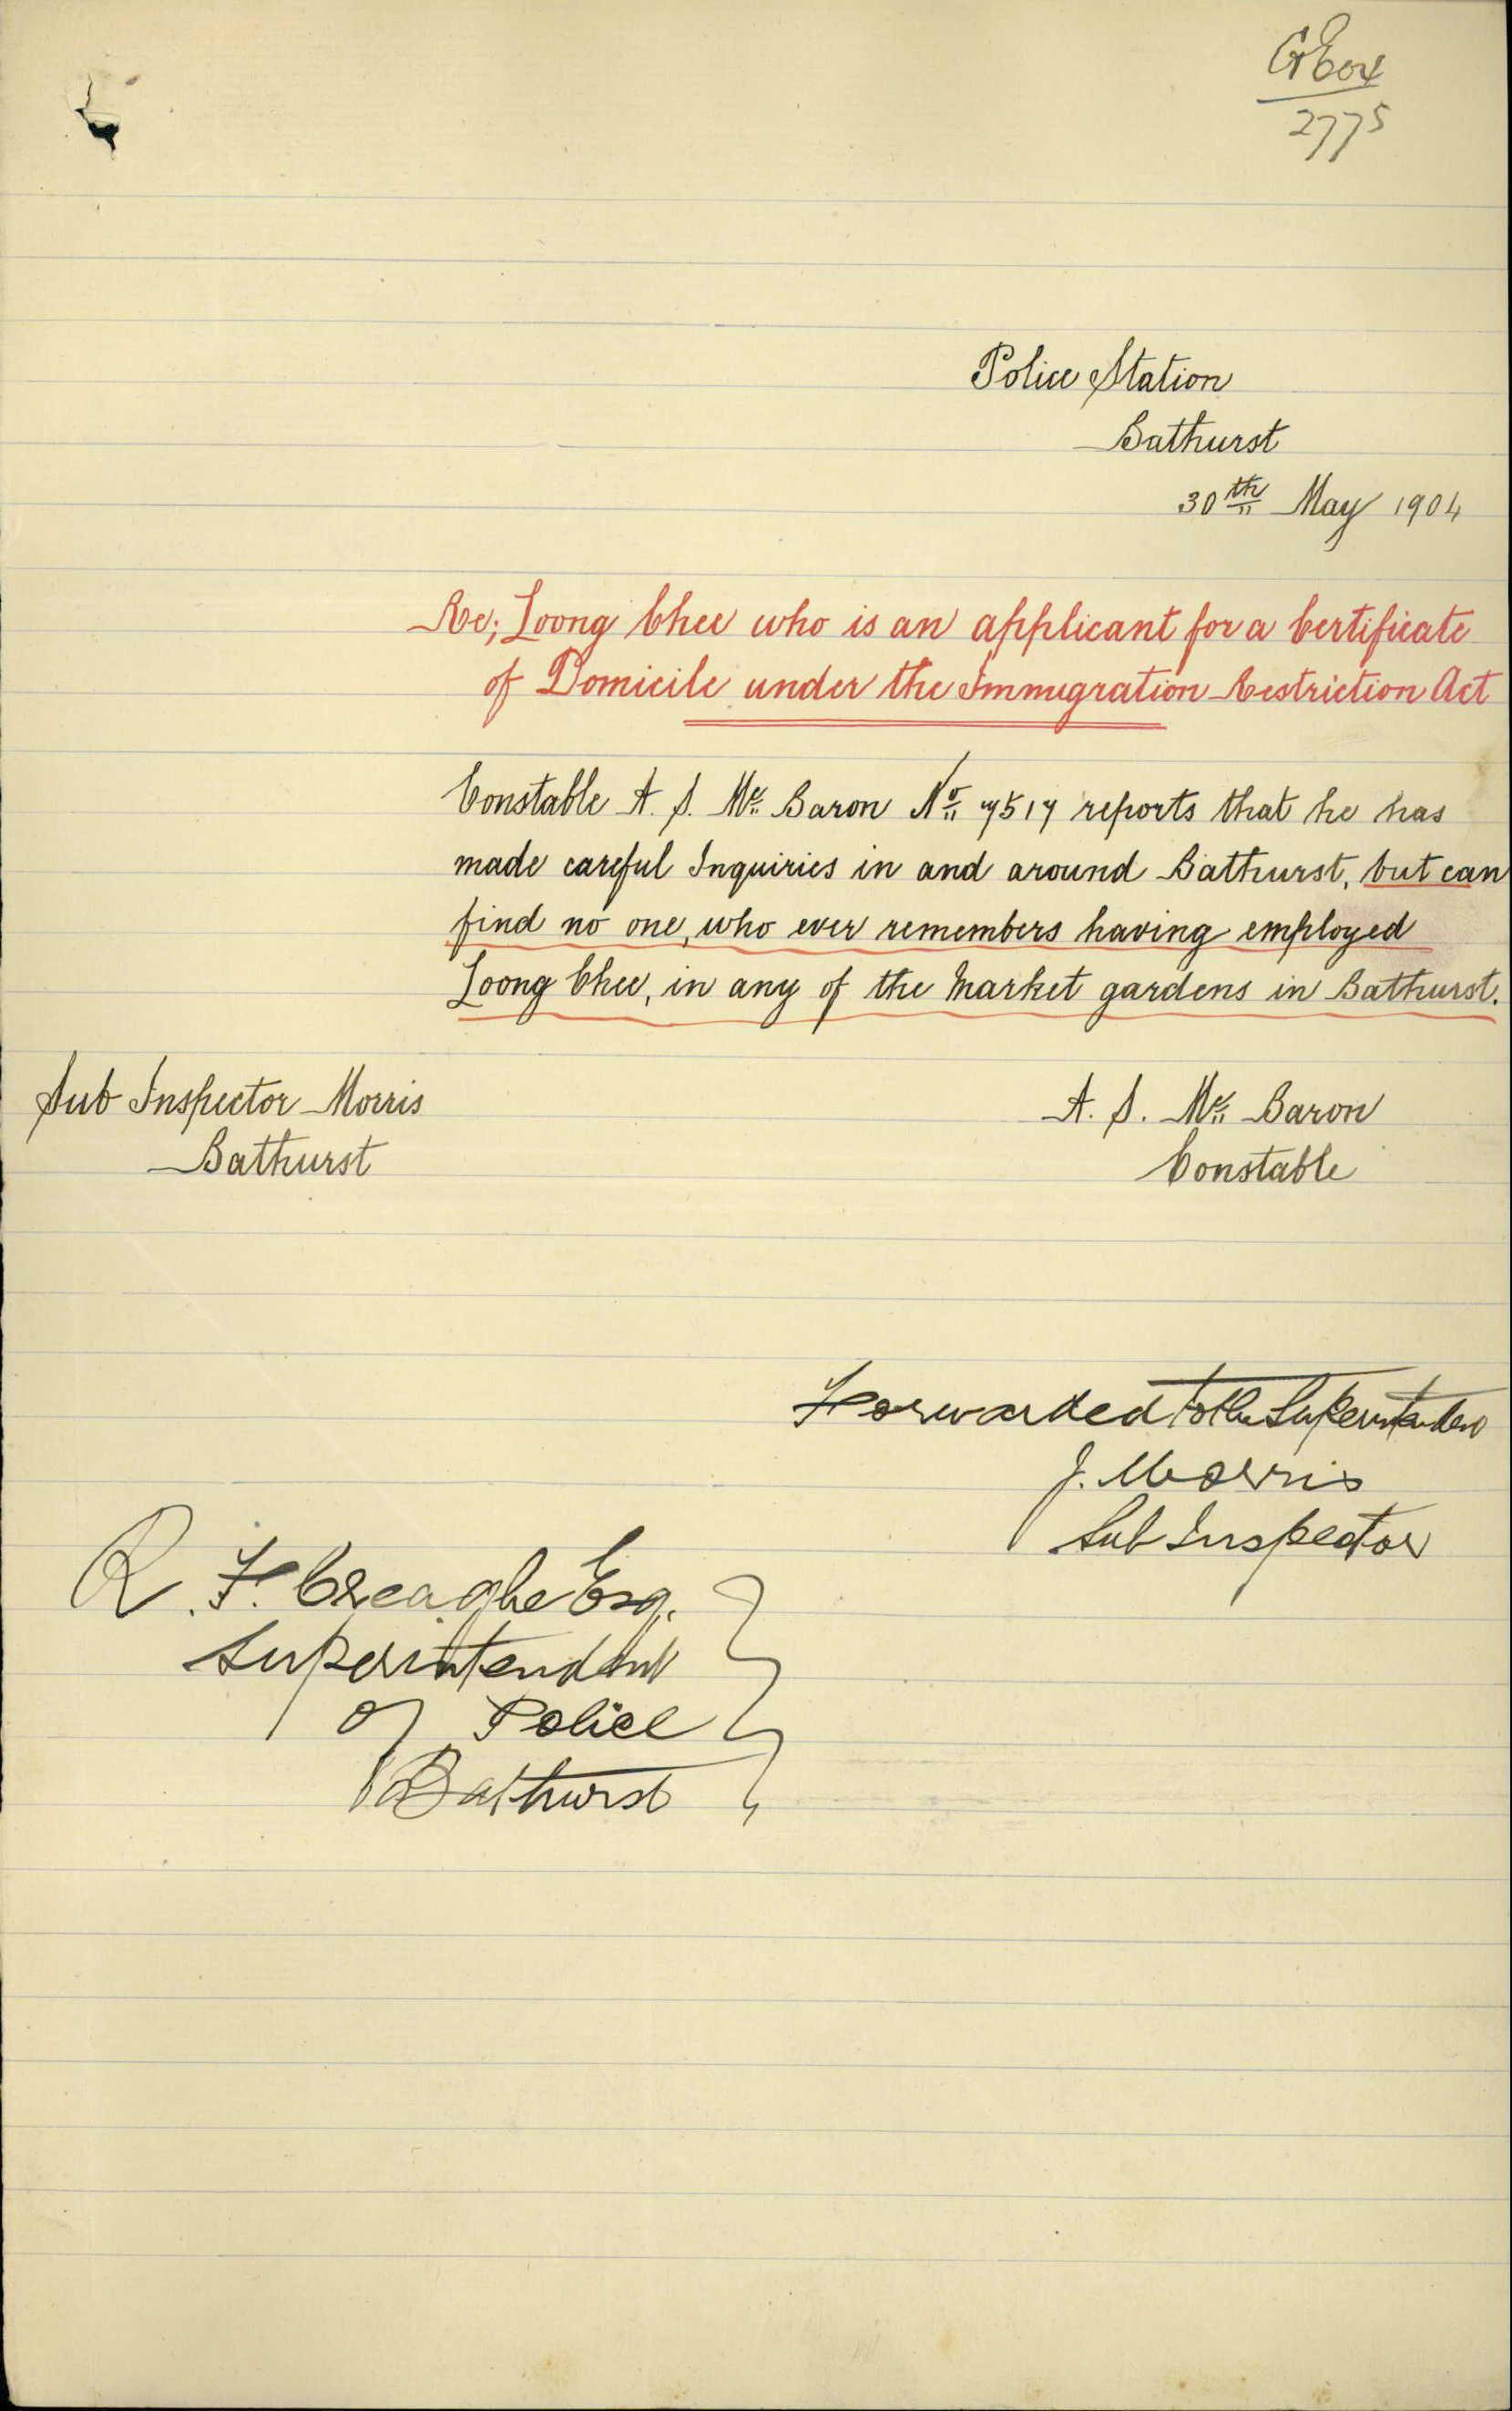 2775
Police Station
Bathurst
30th May 1904
Re; Loong Chee who is an applicant for a Certificate
of Domicile under the Immigration Restriction Act
Constable A. S. Mc Baron No 7517 reports that he has
made careful Inquiries in and around Bathurst, but can
find no one, who ever remembers having employed
Loong Chee, in any of the Market gardens in Bathurst.
Sub Inspector Morris
Bathurst
A. S. Mc Baron
Constable
Forwarded to the Superintendent
J. Morris
Sub Inspector
R. F. Creaghe Esq.
Superintendent
of Police
Bathurst